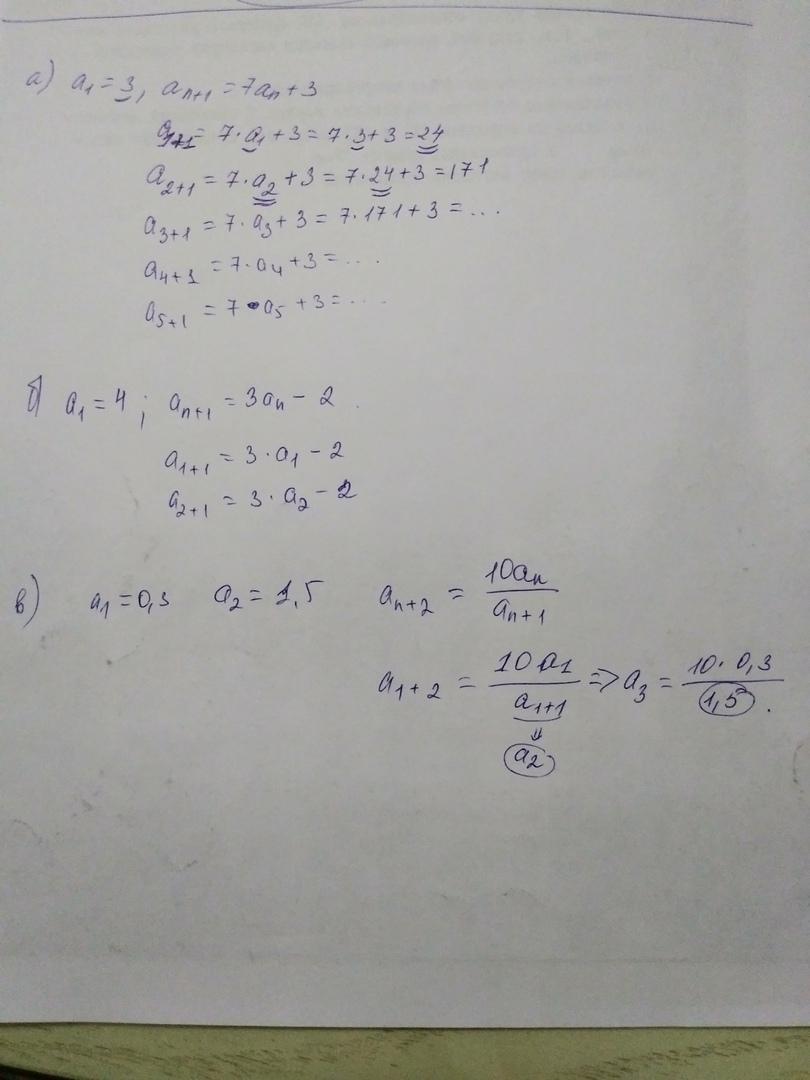 а) a₁ = 3, aₙ₊₁ = 7aₙ + 3
a₁₊₁ = 7·a₁ + 3 = 7·3 + 3 = 24
a₂₊₁ = 7·a₂ + 3 = 7·24 + 3 = 171
a₃₊₁ = 7·a₃ + 3 = 7·171 + 3 = ...
a₄₊₁ = 7·a₄ + 3 = ...
a₅₊₁ = 7·a₅ + 3 = ...
б) a₁ = 4; aₙ₊₁ = 3aₙ - 2
a₁₊₁ = 3·a₁ - 2
a₂₊₁ = 3·a₂ - 2
в) a₁ = 0,3 a₂ = 1,5 aₙ₊₂ = 10aₙ / aₙ₊₁
a₁₊₂ = 10a₁ / a₁₊₁ => a₃ = 10·0,3 / 1,5.
⇓
a₂